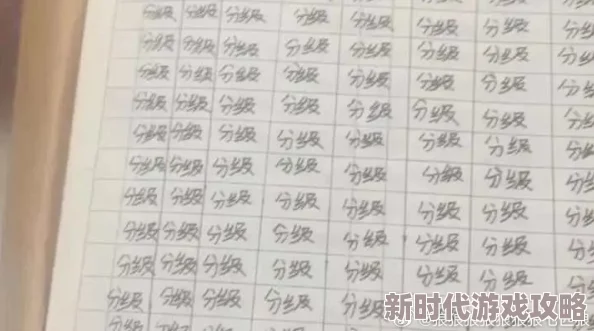 分级 分级 分级 分级 分级 分级 分级 分级
分级 分级 分级 分级 分级 分级 分级 分级
分级 分级 分级 分级 分级 分级 分级 分级
分级 分级 分级 分级 分级 分级 分级 分级
分级 分级 分级 分级 分级 分级 分级 分级
分级 分级 分级 分级 分级 分级 分级 分级
分级 分级 分级 分级 分级 分级 分级 分级
分级 分级 分级 分级 分级 分级 分级 分级
分级 分级 分级 分级 分级 分级 分级 分级
分级 分级 分级 分级 分级
新时代游戏攻略
分级